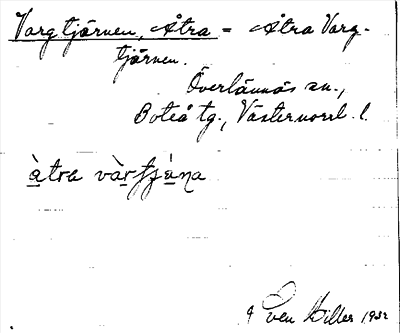 Vargtjärnen, Åtra = Åtra Varg-
tjärnen.
Överlännäs sn.,
Boteå tg., Västernorrl. l.
àtra vàrtjäṇa
Sven Hiller 1932